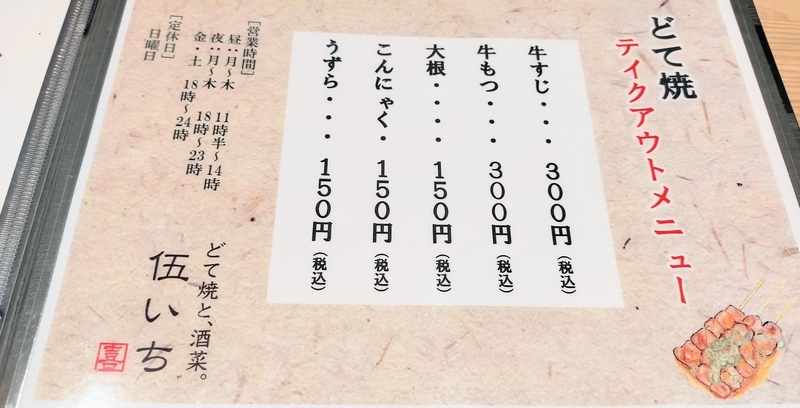 どて焼
テイクアウトメニュー
牛すじ・・・300円(税込)
牛もつ・・・300円(税込)
大根・・・・150円(税込)
こんにゃく・150円(税込)
うずら・・・150円(税込)
[営業時間]
昼:月〜木 11時半〜14時
夜:月〜木 18時〜23時
金・土 18時〜24時
[定休日]
日曜日
どて焼と、酒菜。
伍いち
喜